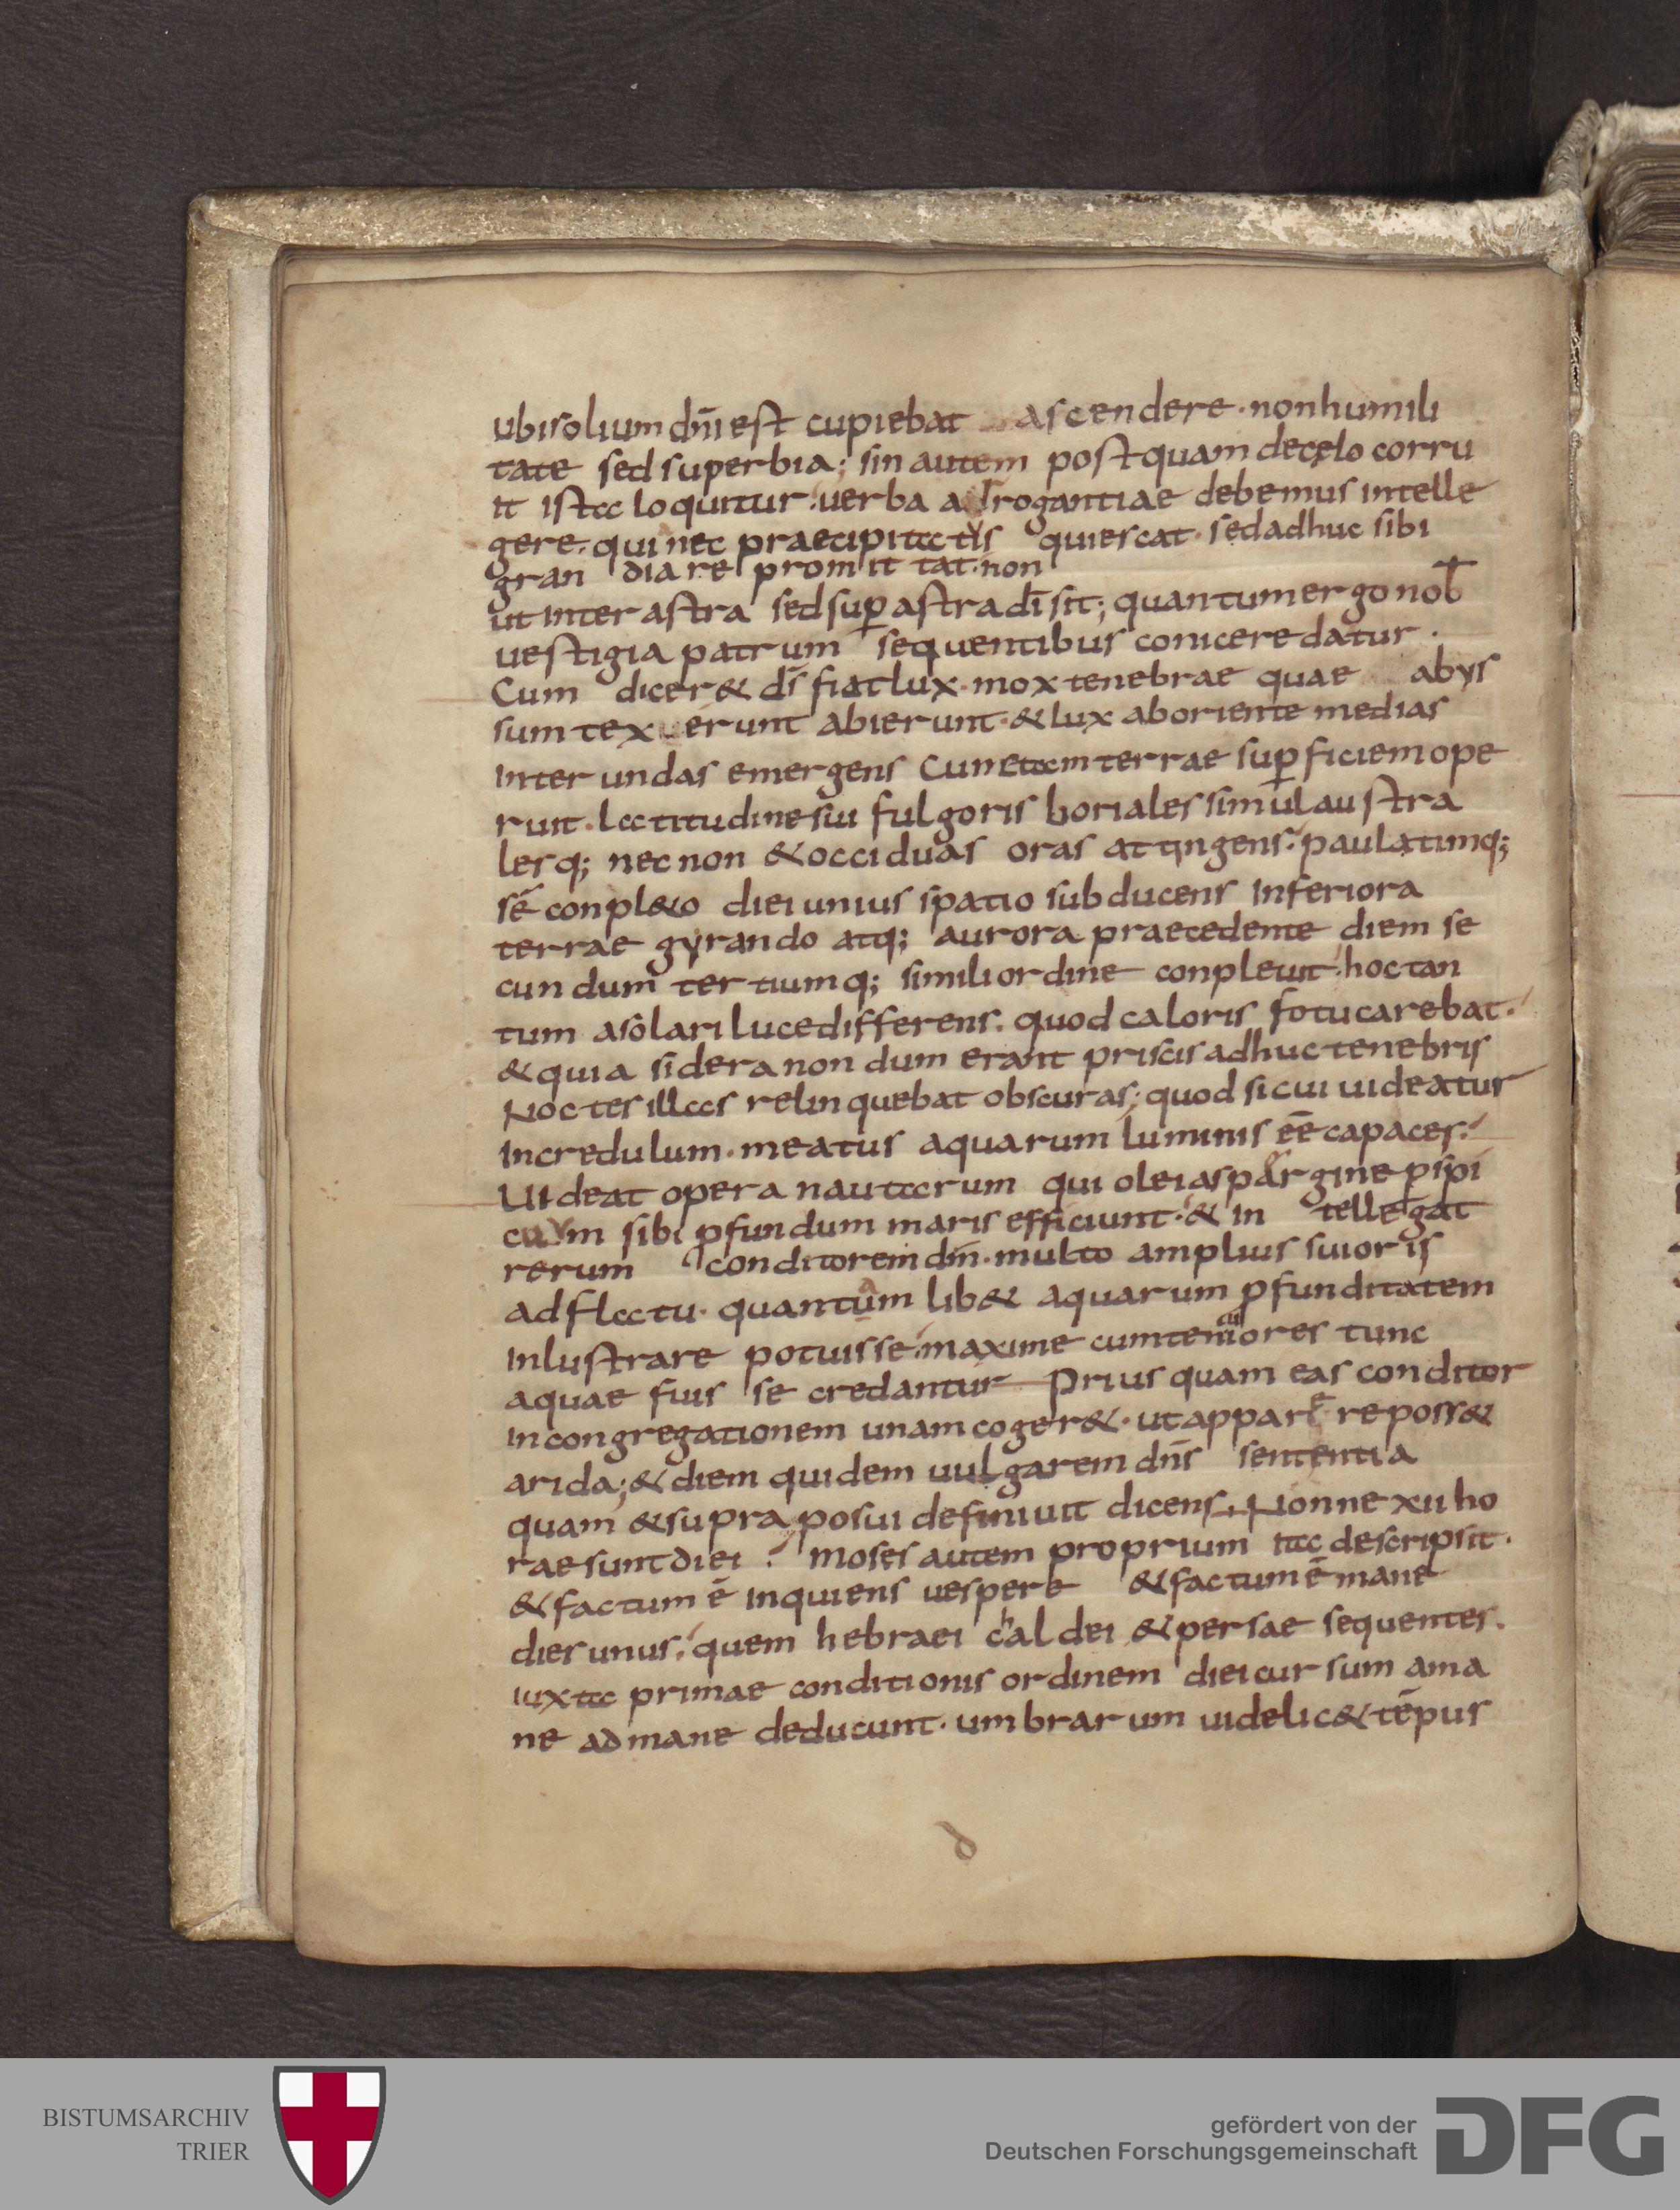 ubi solium dñi est cupiebat ascendere · non humili
tate sed superbia; sin autem postquam de cęlo corru
it ista loquitur · uerba adrogantiae debemus intelle
gere · qui nec praecipitatus quiescat · sed adhuc sibi
grandia repromittat · non
ut inter astra sed sup̱ astra dī sit; quantum ergo nob̄
uestigia patrum sequentibus conicere datur ·
Cum dicer& d̄s fiat lux · mox tenebrae quae abys
sum texerunt abierunt · & lux ab oriente medias
inter undas emergens Cunctam terrae sup̱ficiem ope
ruit · latitudine sui fulgoris boriales simul austra
lesq; nec non & occiduas oras attingens · paulatimq;
se conpl&o diei unius spatio subducens inferiora
terrae gyrando atq; aurora praecedente diem se
cundum tertiumq; simili ordine conpleuit · hoc tan
tum a solari luce differens · quod caloris fotu carebat ·
& quia sidera nondum erant priscis adhuc tenebris
Noctes illas relinquebat obscuras; quod si cui uideatur
incredulum · meatus aquarum luminis eē capaces ·
Uideat opera nautarum qui olei aspargine p̱spi
cuum sibi p̱fundum maris efficiunt · & intellegat
rerum conditorem dm̄ · multo amplius sui oris
adflatu · quantum lib& aquarum p̱funditatem
inlustrare potuisse · maxime cum teniores tunc
aquae fuisse credantur Prius quam eas conditor
in congregationem unam coger& · ut apparere poss&
arida; & diem quidem uulgarem dn̄s sententia
quam & supra posui definiuit dicens · Nonne xii ho
rae sunt diei ? Moses autem proprium ita descripsit ·
& factum ē inquiens uespere & factum ē mane
dies unus · quem hebraei chaldei & persae sequentes ·
iuxta primae conditionis ordinem diei cursum a ma
ne ad mane deducunt · umbrarum uidelic& tēpus
BISTUMSARCHIV
TRIER
gefördert von der
Deutschen Forschungsgemeinschaft
DFG